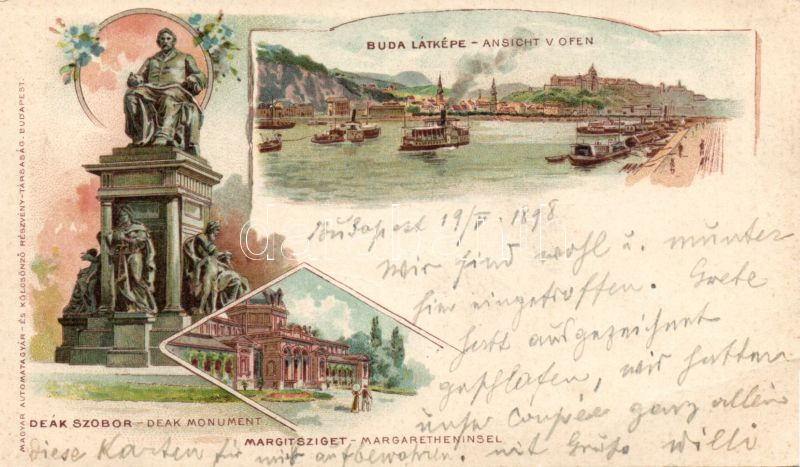 BUDA LÁTKÉPE – ANSICHT V OFEN
MAGYAR AUTOMATAGYÁR- ÉS KÖLCSÖNZŐ RÉSZVÉNY-TÁRSASÁG. BUDAPEST.
Budapest 19/V. 1898
Wir sind wohl u. munter
hier eingetroffen. Grete
hatt ausgezeichnet
geschlafen, wir hatten
unser Coupée ganz allein
DEÁK SZOBOR – DEAK MONUMENT
MARGITSZIGET – MARGARETHENINSEL
diese Karten für mich aufbewahren. mit Gruß Willi